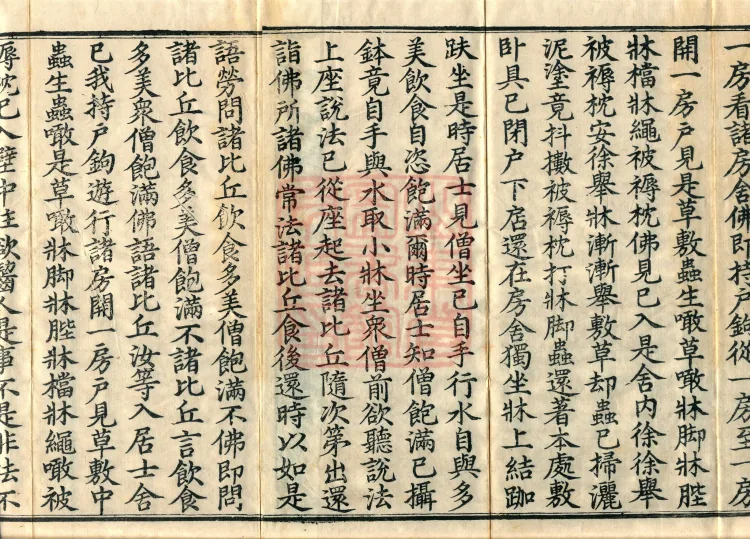 一房看諸房舍佛即持戶鉤從一房至一房
開一房戶見是草敷蟲生噉草噉牀脚牀䏶
牀檔牀繩被褥枕佛見已入是舍內徐徐舉
被褥枕安徐舉牀漸漸舉敷草却蟲已掃灑
泥塗竟抖擻被褥枕打牀脚蟲還著本處敷
卧具已閉戶下店還在房舍獨坐牀上結跏
趺坐是時居士見僧坐已自手行水自與多
美飲食自恣飽滿爾時居士知僧飽滿已攝
鉢竟自手與水取小牀坐衆僧前欲聽說法
上座說法已從座起去諸比丘隨次第出還
詣佛所諸佛常法諸比丘食後還時以如是
語勞問諸比丘飲食多美僧飽滿不佛即問
諸比丘飲食多美僧飽滿不諸比丘言飲食
多美衆僧飽滿佛語諸比丘汝等入居士舍
已我持戶鉤遊行諸房開一房戶見草敷中
蟲生蟲噉是草噉牀脚牀䏶牀檔牀繩噉被
褥枕已入壁中住欲醫人是事不是非法不